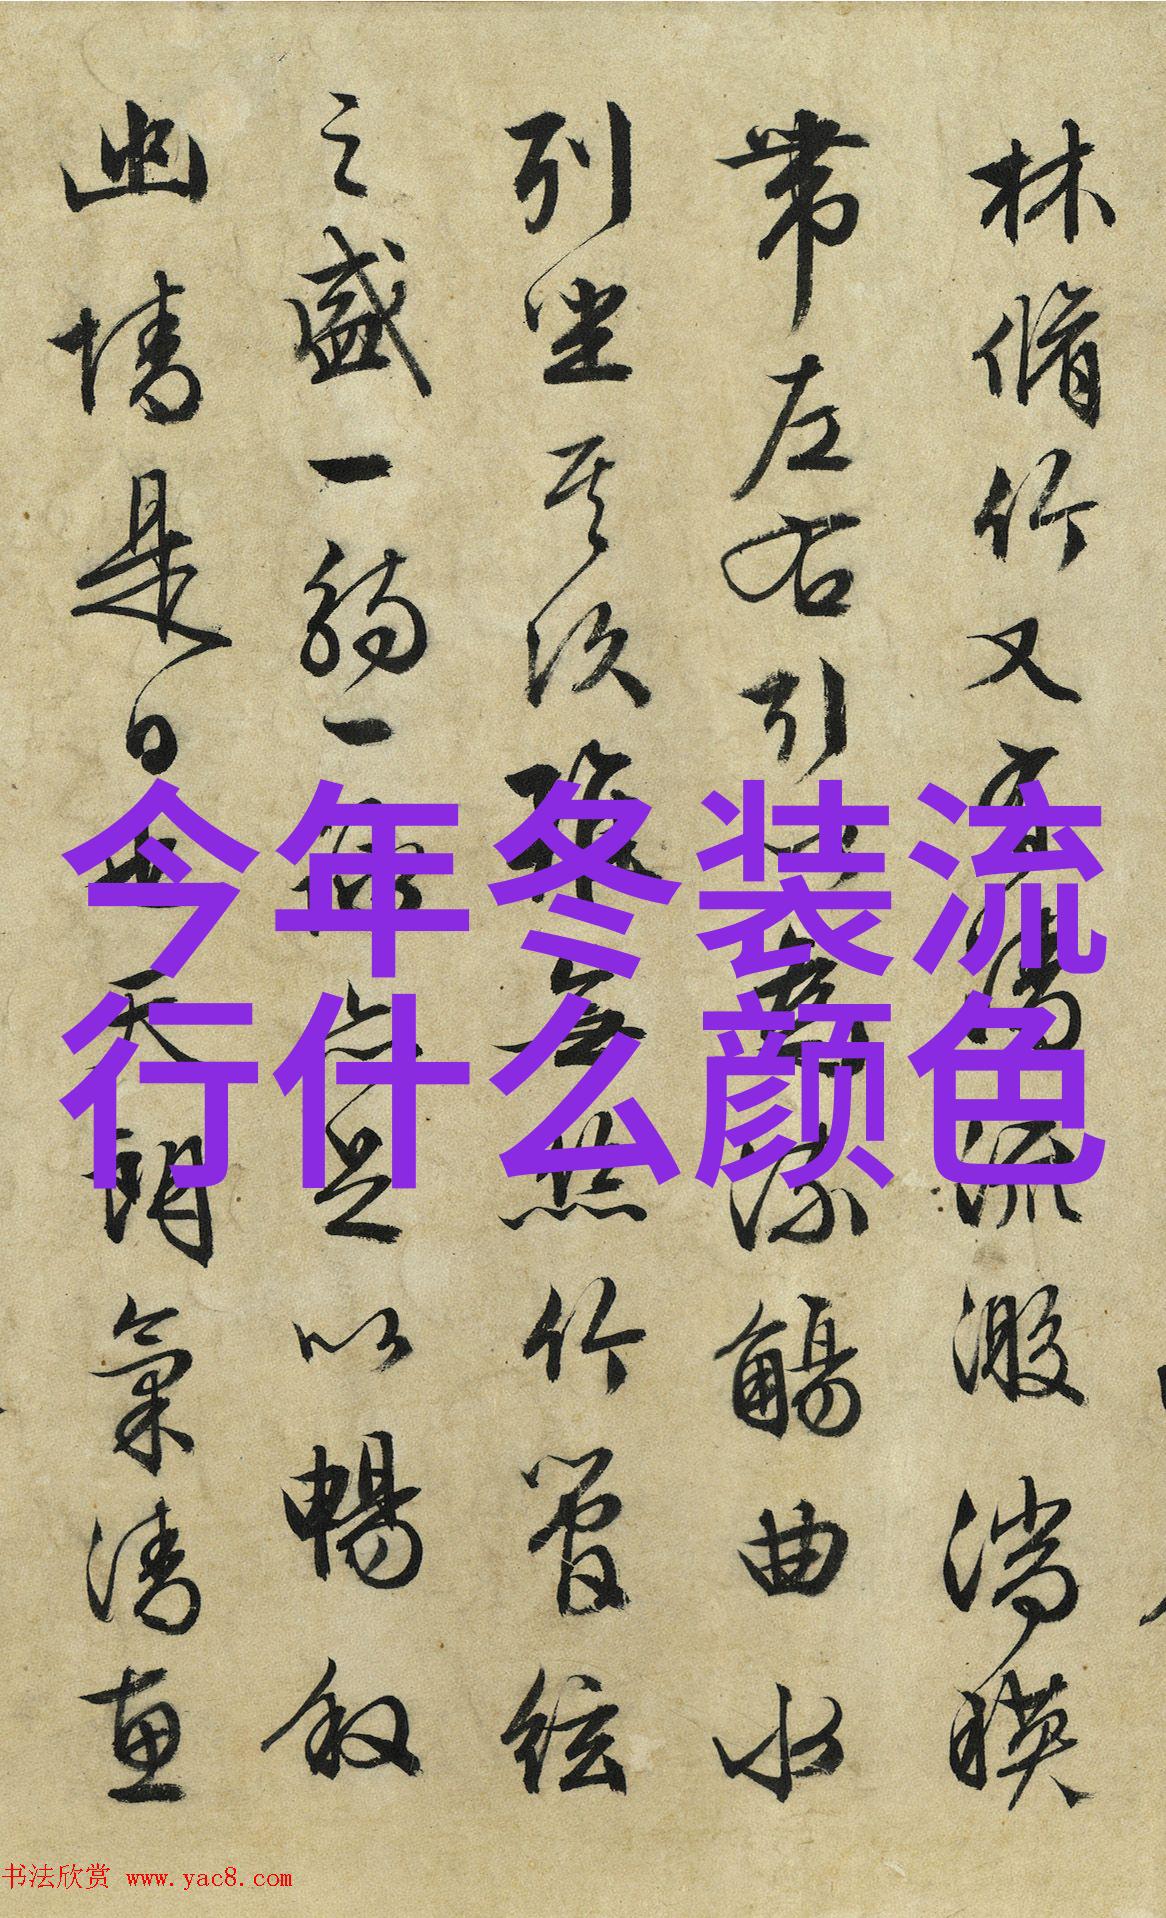 林脩竹又有清流激湍暎
帶左右引以為流觴曲水
列坐其次雖無絲竹管絃
之盛一觴一詠亦足以暢敘
幽情是日也天朗氣清惠
今年冬装流
行什么颜色
书法欣赏 www.yac8.com